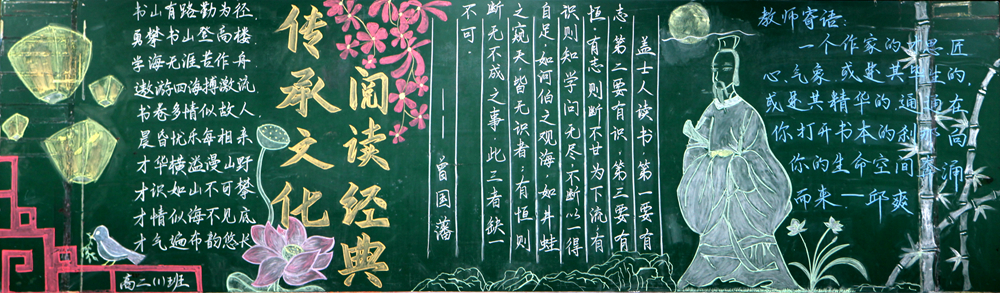 书山有路勤为径.
勇攀书山登高楼.
学海无涯苦作舟.
遨游四海搏激流.
书卷多情似故人.
晨昏忧乐每相亲
才华横溢漫山野
才识如山不可攀
才情似海不见底
才气遍布韵悠长
高二(1)班
阅读经典
传承文化
盖士人读书第一要有
志第二要有识第三要有
恒,有志则断不甘为下流,有
识则知学问无尽不断以一得
自足,如河伯之观海,如井蛙
之窥天皆无识者;有恒则
断无不成之事,此三者缺一
不可
——曾国藩
教师寄语:
一个作家的 思匠
心 或是其 的
或是其精华的通道在
你打开书本的刹那
你的生命空间 奔涌
而来—邱爽